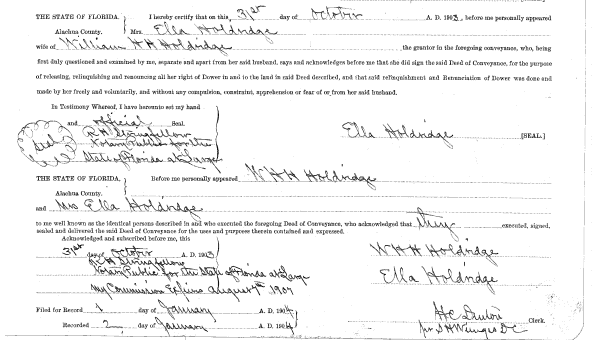 THE STATE OF FLORIDA. } I hereby certify that on this, 31st day of October A. D. 1903, before me personally appeared
Alachua County. Mrs. Ella Holdridge
wife of William H H Holdridge the grantor in the foregoing conveyance, who, being
first duly questioned and examined by me, separate and apart from her said husband, says and acknowledges before me that she did sign the said Deed of Conveyance, for the purpose
of releasing, relinquishing and renouncing all her right of Dower in and to the land in said Deed described, and that said relinquishment and Renunciation of Dower was done
made by her freely and voluntarily, and without any compulsion, constraint, apprehension or fear of or from her said husband.
In Testimony Whereof, I have hereunto set my hand
and official Seal.
R H Stringfellow
Notary Public for the
State of Florida at Large
Seal
Ella Holdridge [SEAL.]
THE STATE OF FLORIDA. } Before me personally appeared W H H Holdridge
Alachua County.
and Mrs Ella Holdridge
to me well known as the identical persons described in and who executed the foregoing Deed of Conveyance, who acknowledged that they executed, signed,
sealed and delivered the said Deed of Conveyance for the uses and purposes therein contained and expressed.
Acknowledged and subscribed before me, this
31st day of October A. D. 1903
R H Stringfellow
Notary Public for the State of Florida at Large
My Commission Expires August 9th 1907
W H H Holdridge
Ella Holdridge
Filed for Record 1 day of January A. D. 1904
Recorded 2 day of January A. D. 1904
Clerk.
D C